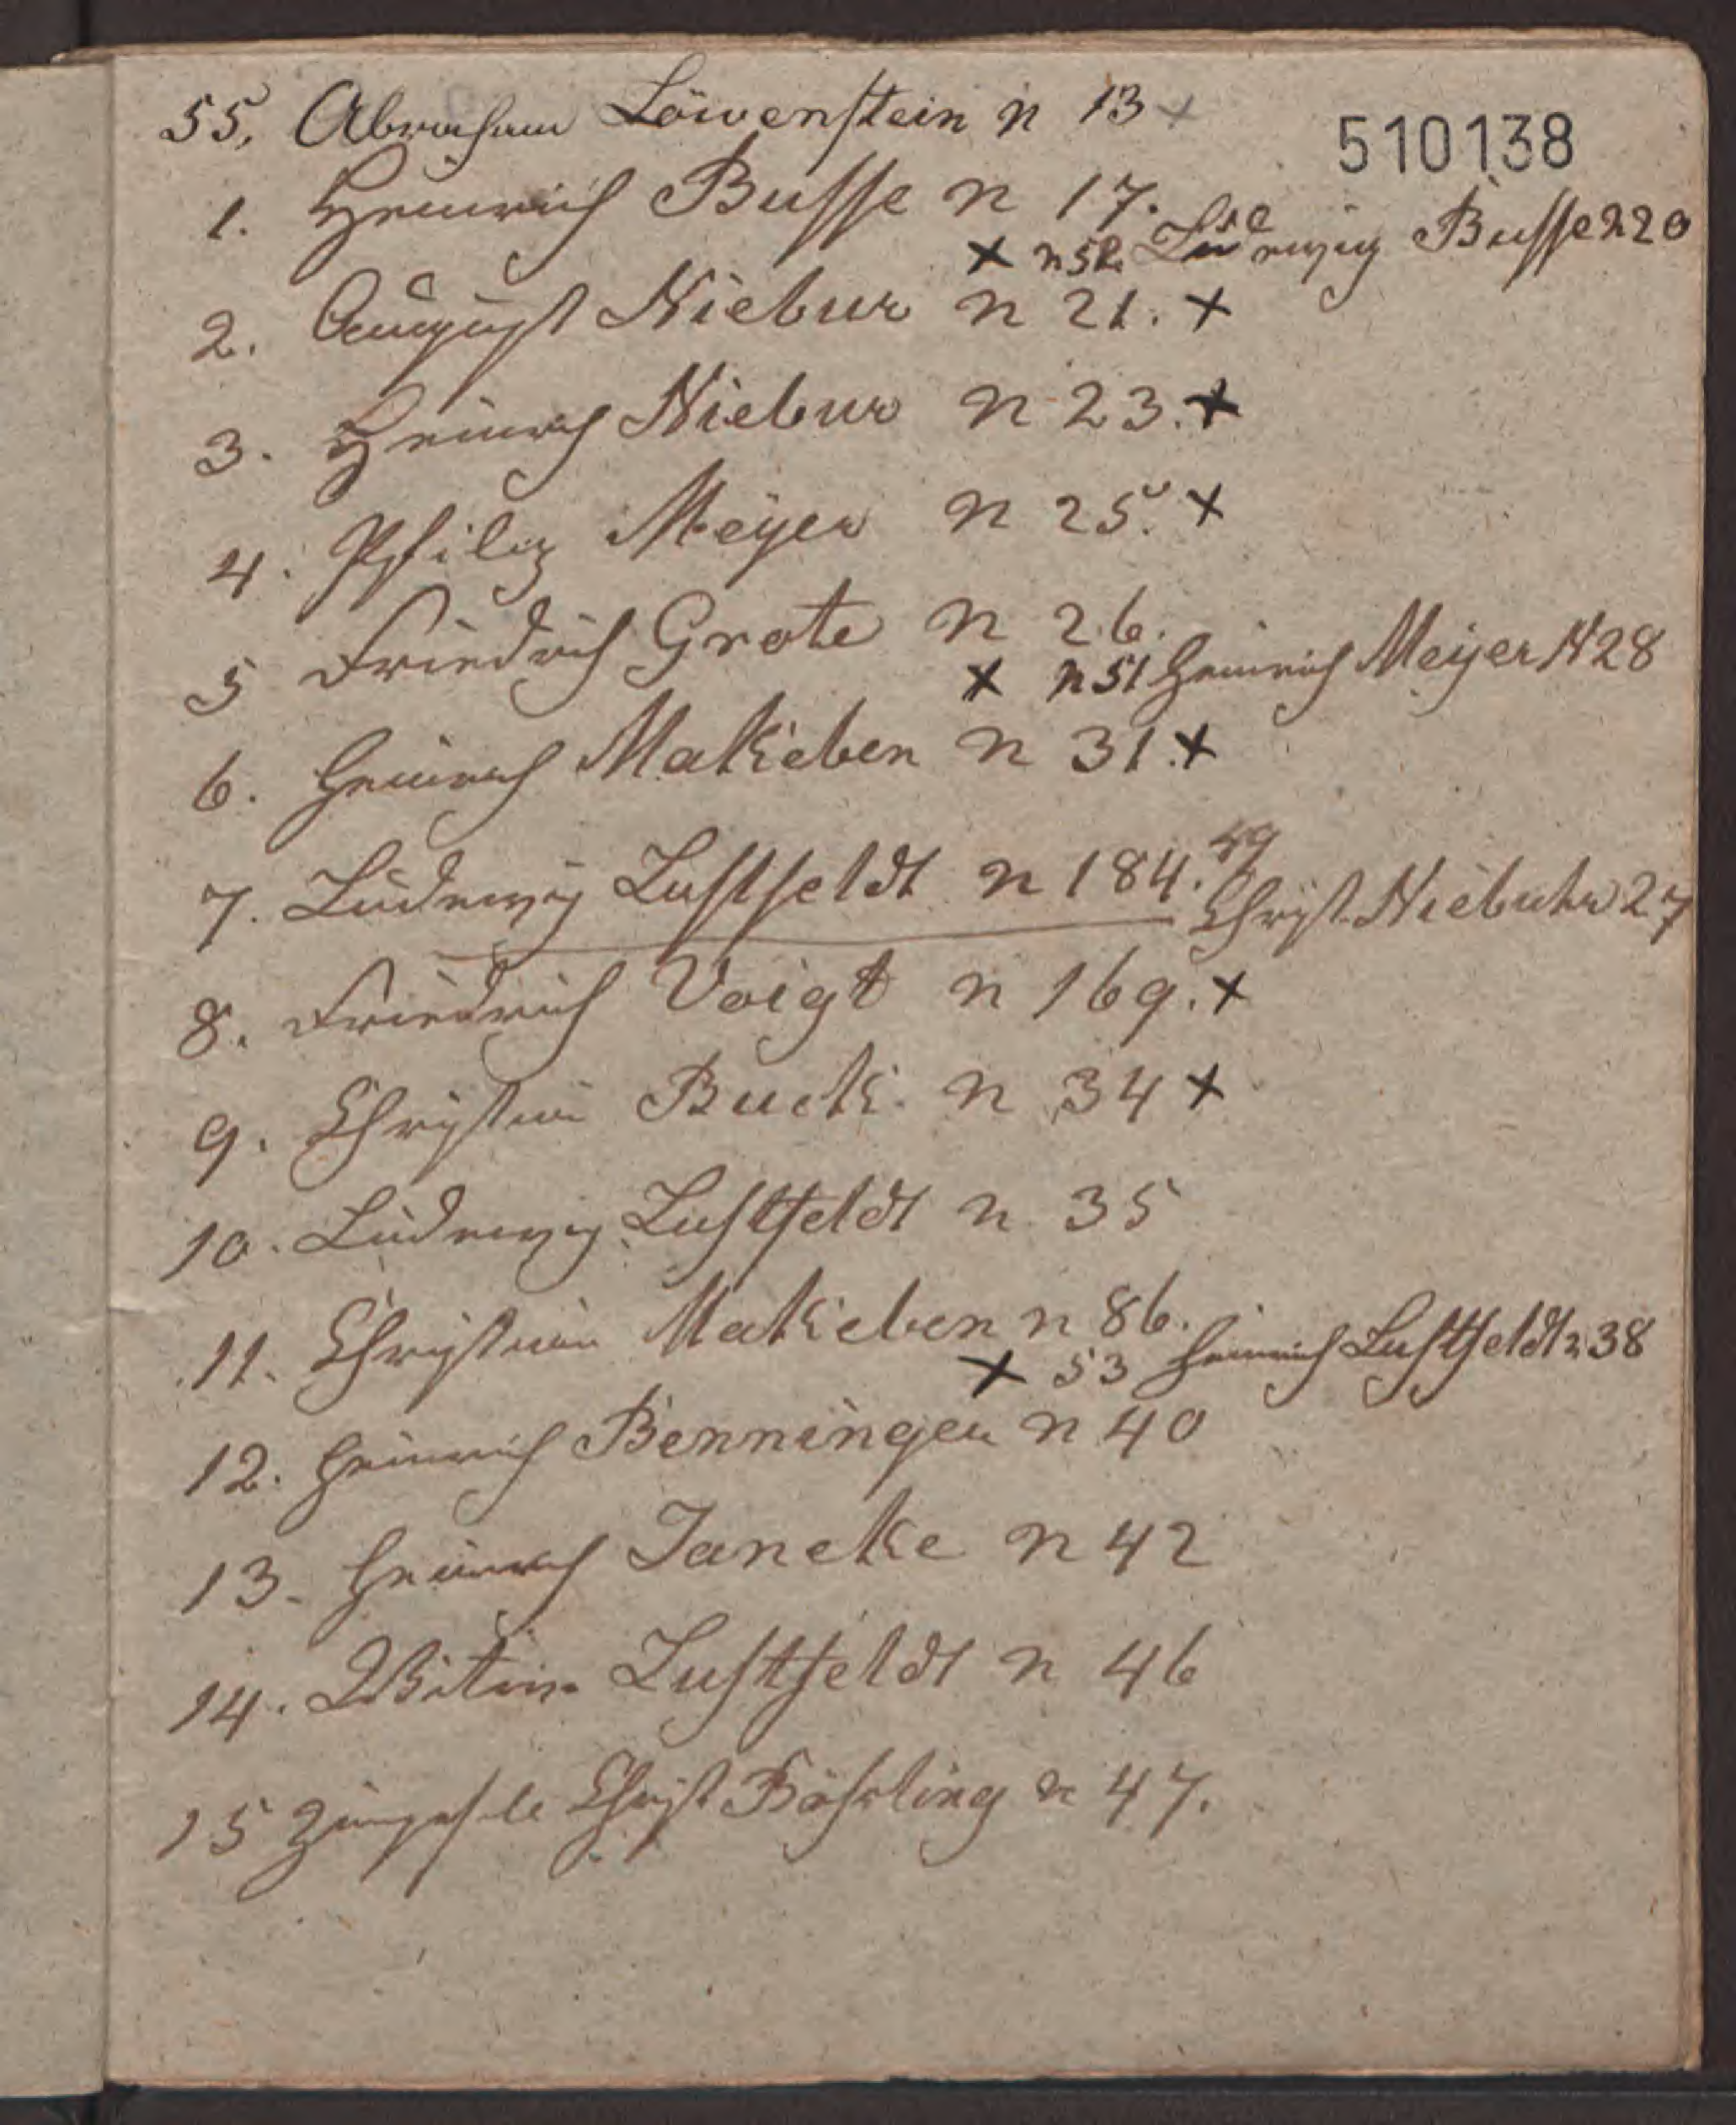 55. Abraham Löwenstein n 13 x
510138
1. Heinrich Busse n 17.
x n 52. Ludewig Busse n 20
2. August Niebur n 21. x
3. Heinrich Niebur n 23. x
4. Philip Meyer n 25. x
5 Friedrich Grote n 26.
x n 51 Heinrich Meyer N 28
6. Heinrich Makeben n 31. x
7. Ludewig Lustfeldt n 184.
49 Christ. Niebuhr 27
8. Friedrich Voigt n 169. x
9. Christian Buck n 34 x
10. Ludewig Lustfeldt n 35
11. Christian Makeben n 86.
x 53 Heinrich Lustfeldt n 38
12. Heinrich Benningen n 40
13. Heinrich Janeke n 42
14. Witwe Lustfeldt n 46
15 Christ Böhsling n 47.